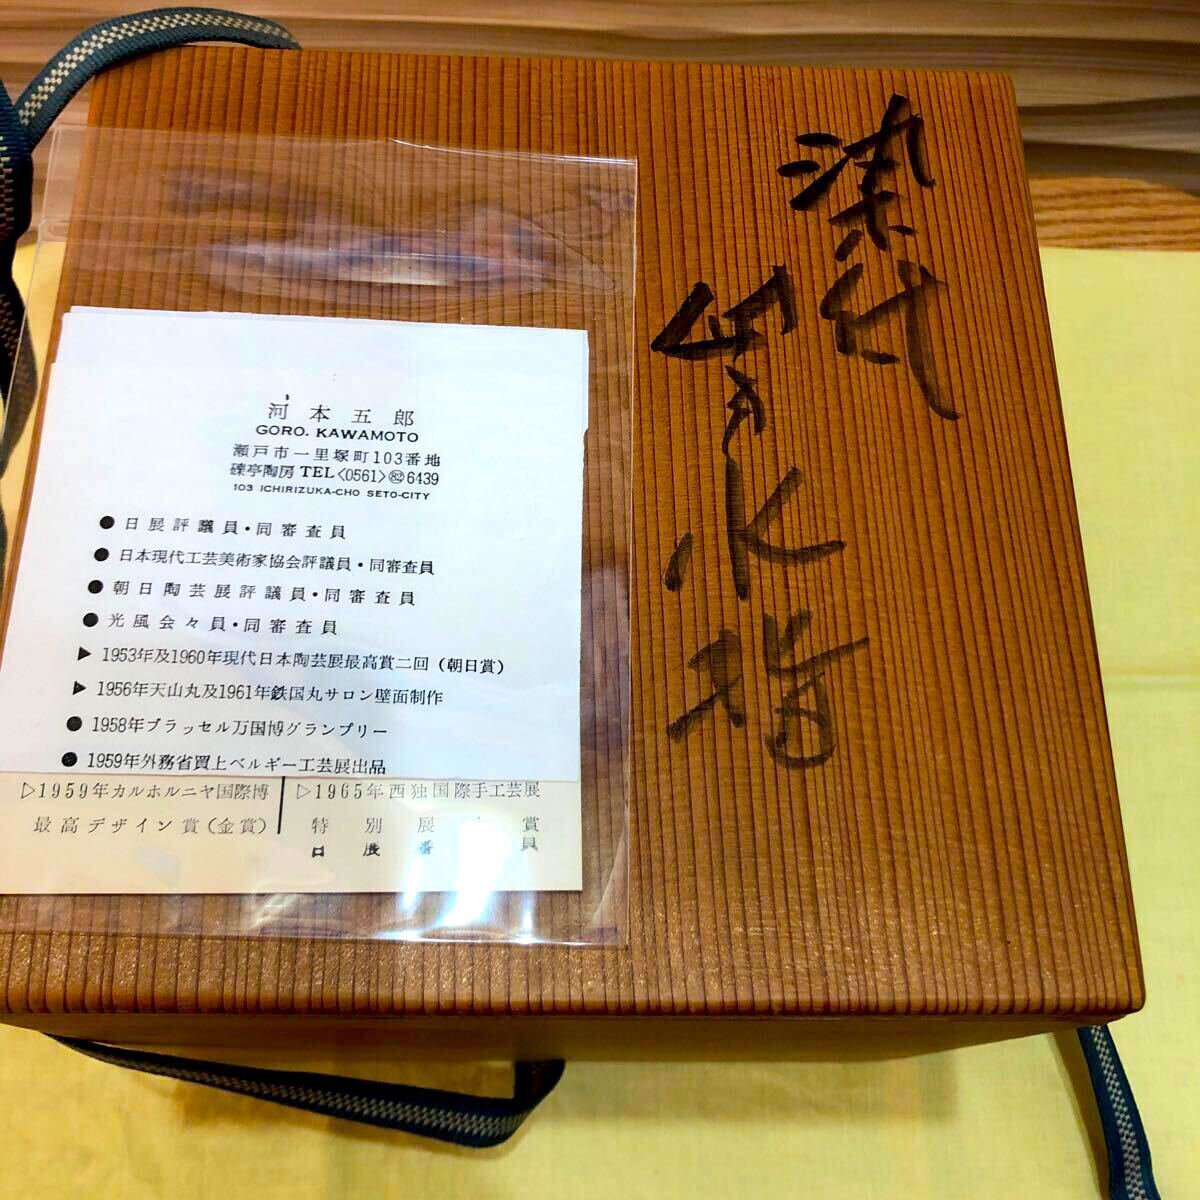 染付
水指
河本五郎
GORO. KAWAMOTO
瀬戸市一里塚町103番地
礫亭陶房 TEL<0561>㉒6439
103 ICHIRIZUKA-CHO SETO-CITY
●日展評議員・同審査員
●日本現代工芸美術家協会評議員・同審査員
●朝日陶芸展評議員・同審査員
●光風会々員・同審査員
▶1953年及1960年現代日本陶芸展最高賞二回(朝日賞)
▶1956年天山丸及1961年鉄国丸サロン壁面制作
●1958年ブラッセル万国博グランプリー
●1959年外務省買上ベルギー工芸展出品
▷1959年カルホルニヤ国際博
最高デザイン賞(金賞)
▷1965年西独国際手工芸展
特別展 賞